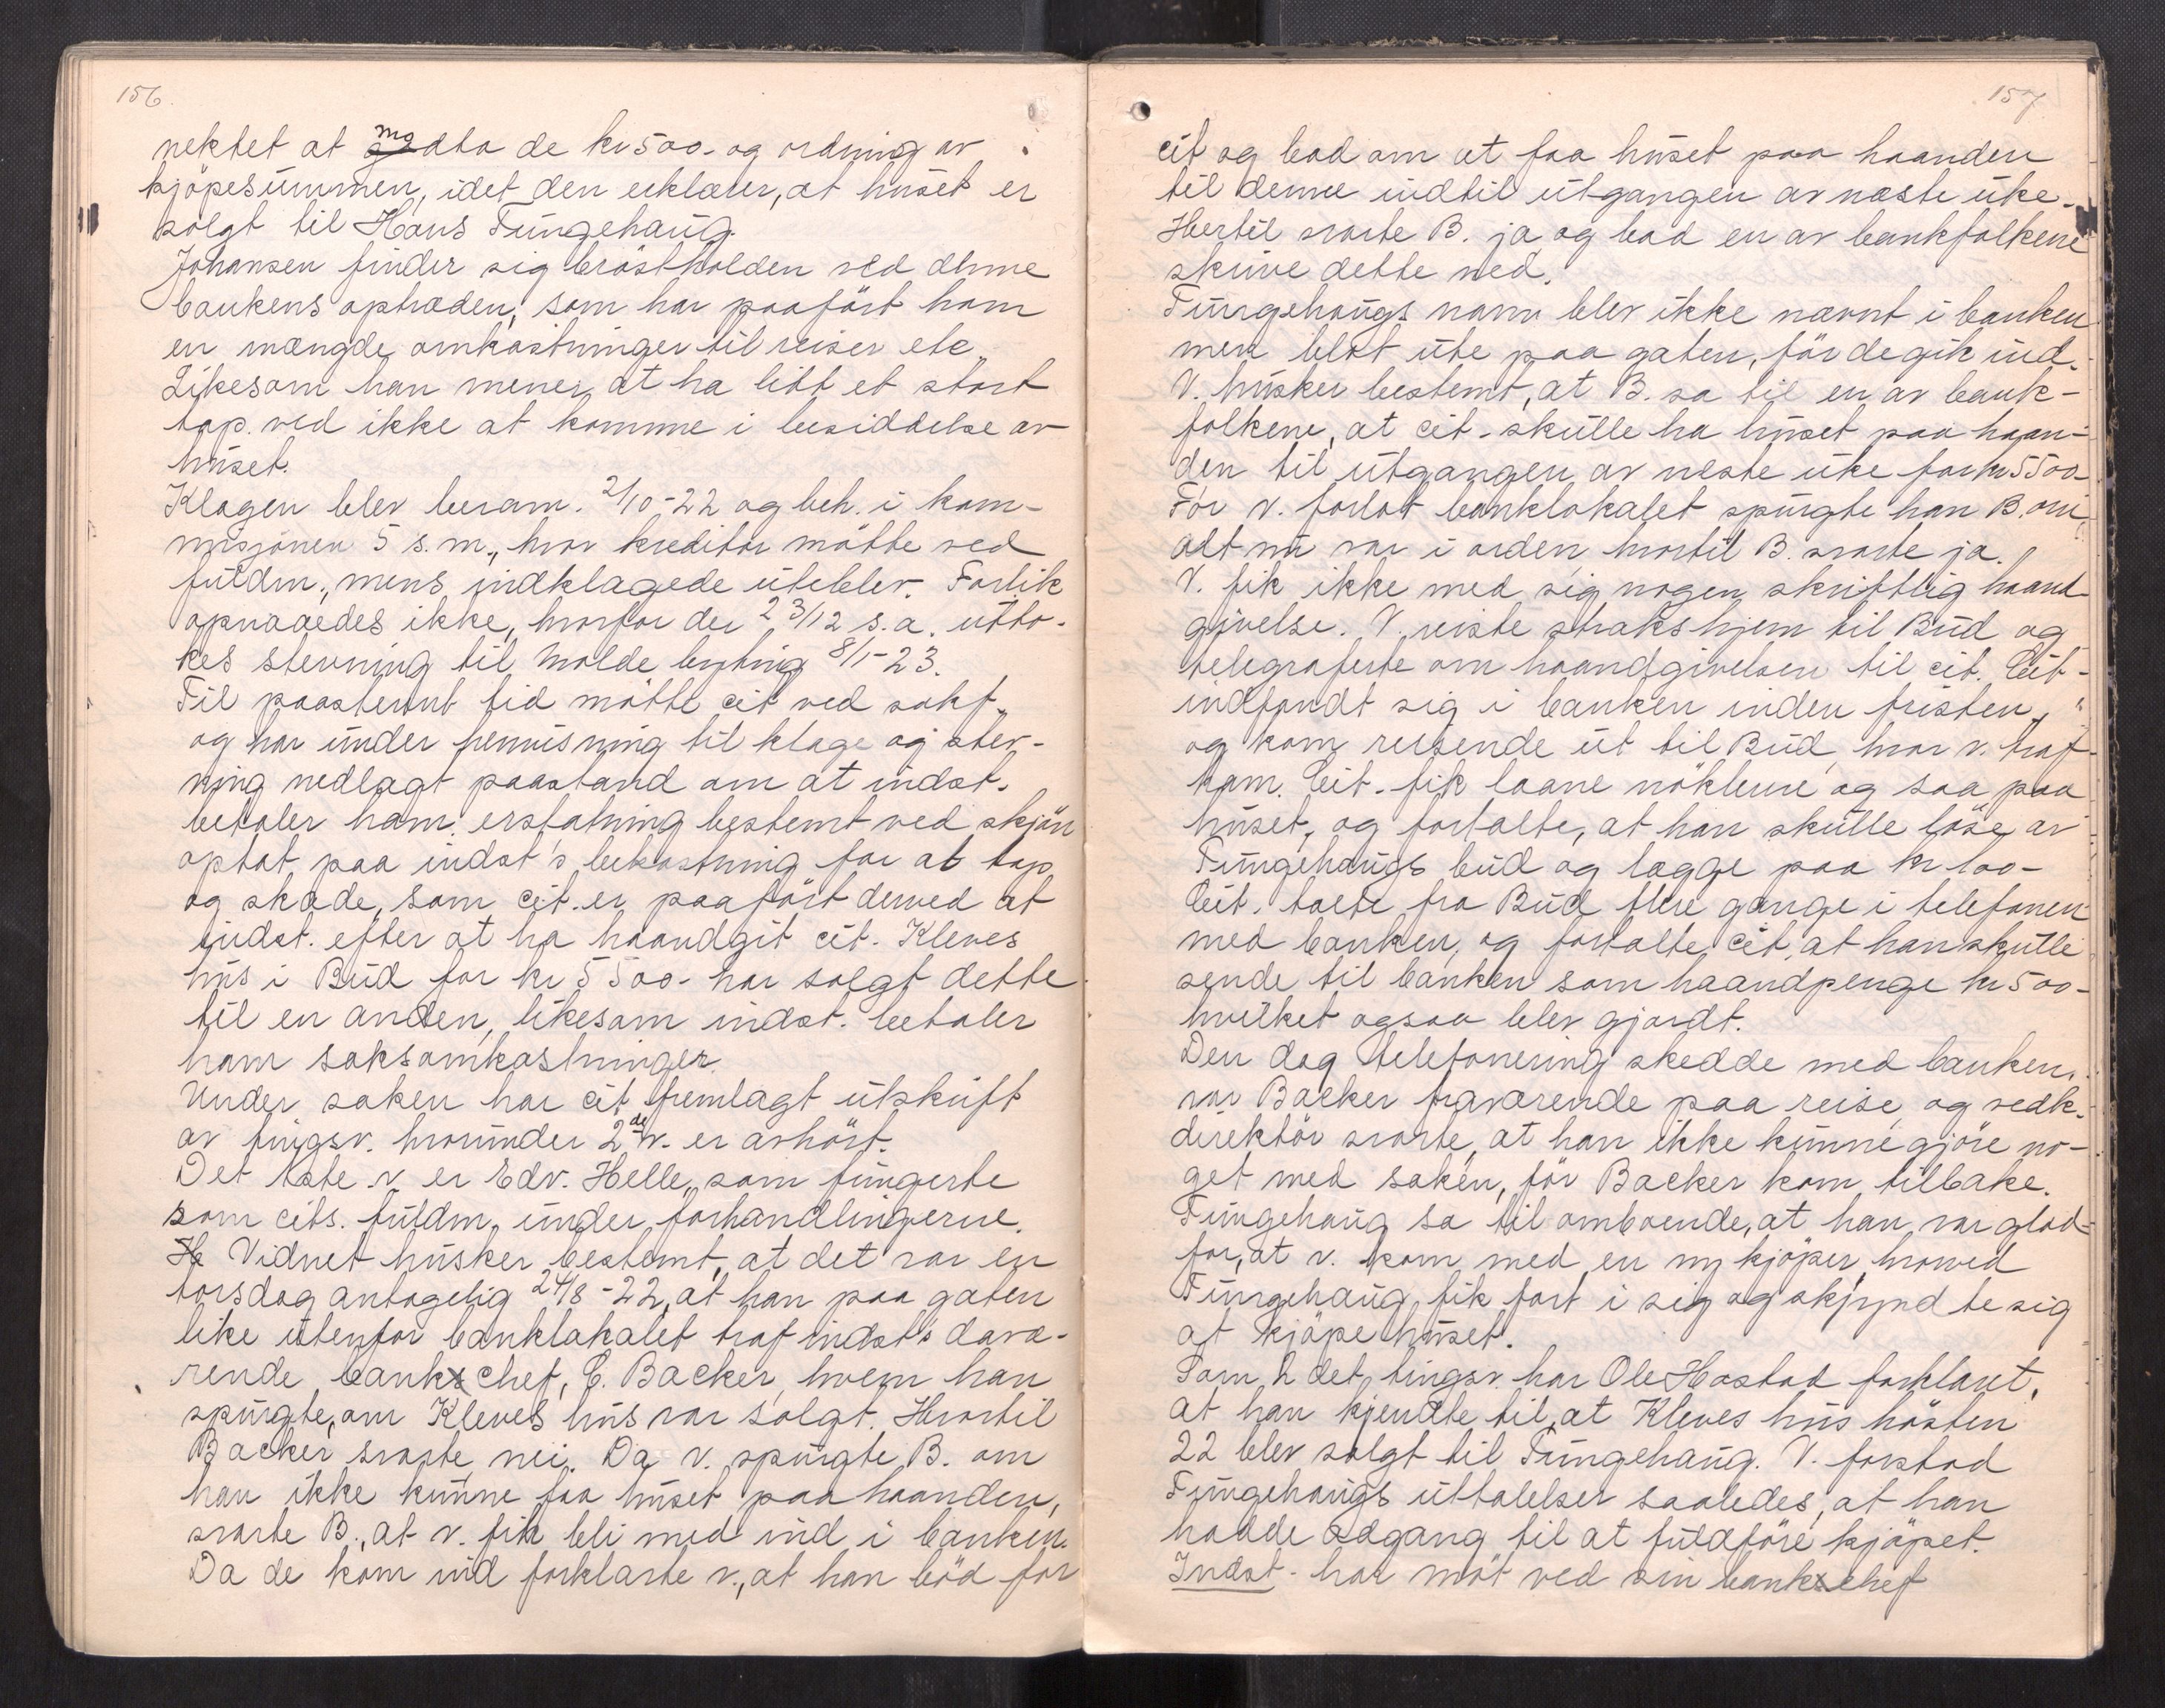 156.
nektet at motta de kr 500.- og ordning av
kjöpesummen, idet den erklærer, at huset er
solgt til Hans Tungehaug.
Johansen finder sig bröstholden ved denne
bankens optræden, som har paafört ham
en mængde omkostninger til reiser etc.
Likesom han mener at ha lidt et stort
tap ved ikke at komme i besiddelse av
huset.
Klagen blev beram. 2/10-22 og beh. i kom-
misjonen 5 s.m., hvor kreditor mötte ved
fuldm., mens indklagede uteblev. Forlik
opnaaedes ikke, hvorfor der 23/12 s.a. utto-
kes stevning til Molde byting 8/1-23.
Til paastevnt tid mötte cit ved sakf.
og har under henvisning til klage og stev-
ning nedlagt paastand om at indst.
betaler ham erstatning bestemt ved skjön
optat paa indst's bekostning for alt tap
og skade, som cit. er paafört derved at
indst. efter at ha haandgit cit. Kleves
hus i Bud for kr 5500- har solgt dette
til en anden, likesom indst. betaler
ham saksomkostninger.
Under saken har cit fremlagt utskrift
av tingsv. hvorunder 2 de v. er avhört.
Det 1ste v. er Edv. Helle, som fungerte
som cits. fuldm. under forhandlingerne.
He Vidnet husker bestemt, at det var en
torsdag antagelig 24/8-22, at han paa gaten
like utenfor banklokalet traf indst's davæ-
rende bankschef, C. Backer, hvem han
spurgte, om Kleves hus var solgt. Hvortil
Backer svarte nei. Da v. spurgte B. om
han ikke kunne faa huset paa haanden,
svarte B., at v. fik bli med ind i banken.
Da de kom ind forklarte v., at han böd for
157
cit og bad om at faa huset paa haanden
til denne indtil utgangen av næste uke.
Hertil svarte B. ja og bad en av bankfolkene
skrive dette ned.
Tungehaugs navn blev ikke nævnt i banken
men blot ute paa gaten, för de gik ind.
V. husker bestemt, at B. sa til en av bank-
folkene, at cit. skulle ha huset paa haan-
den til utgangen av neste uke for kr 5500-
För v. forlot banklokalet spurgte han B. om
alt nu var i orden, hvortil B. svarte ja.
V. fik ikke med sig nogen skriftlig haand-
givelse. V. reiste straks hjem til Bud og
telegraferte om haandgivelsen til cit. Cit-
indfandt sig i banken inden fristen,
og kom reisende ut til Bud, hvor v. traf
ham. Cit. fik laane nöklerne og saa paa
huset, og fortalte, at han skulle löse av
Tungehaugs bud og lægge paa kr 100-
Cit. talte fra Bud flere gange i telefonen
med banken, og fortalte cit, at han skulle
sende til banken som haandpenge kr 500-
hvilket ogsaa blev gjordt.
Den dag telefonering skedde med banken,
var Backer fraværende paa reise, og vedk.
direktör svarte, at han ikke kunne gjöre no-
get med saken, för Backer kom tilbake.
Tungehaug sa til omboende, at han var glad
for, at v. kom med en ny kjöper, hvorved
Tungehaug fik fart i sig og skjyndte sig
at kjöpe huset.
Som 2 det tingsv. har Ole Hostad forklaret,
at han kjendte til, at Kleves hus hösten
22 blev solgt til Tungehaug. V. forstod
Tungehaugs uttalelser saaledes, at han
hadde adgang til at fuldföre kjöpet.
Indst- har möt ved sin bankschef